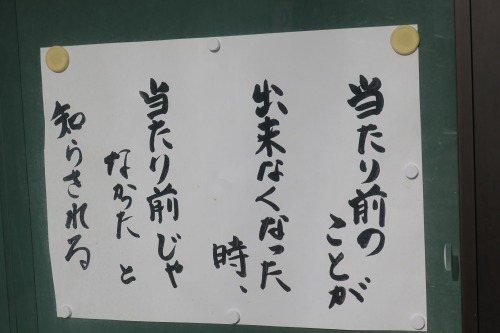 当たり前の
ことが
出来なくなった
時、
当たり前じゃ
なかったと
知らされる